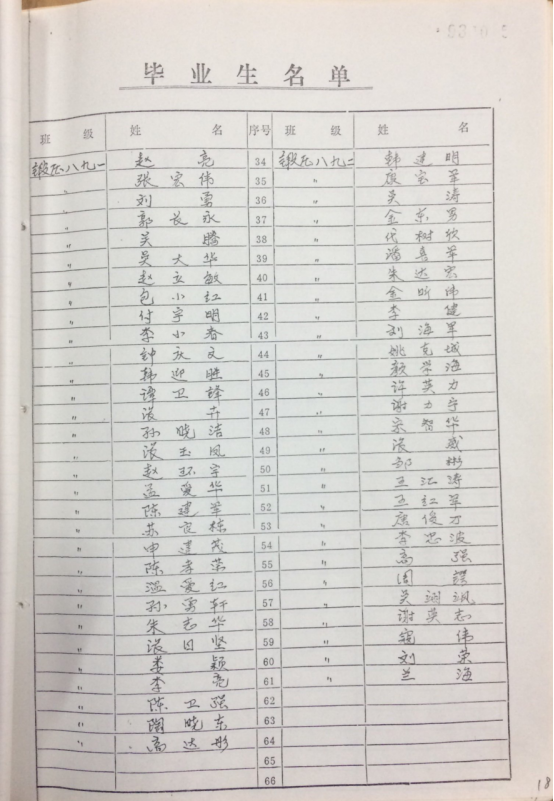 毕业生名单
班级 姓名 序号 班级 姓名
赵亮 34 韩建明
〃 张宏伟 35 〃 康宏军
〃 刘勇 36 〃 吴涛
〃 郭长永 37 〃 金东男
〃 吴腾 38 〃 代树欣
〃 吴大华 39 〃 潘喜军
〃 赵立敏 40 〃 朱达宏
〃 包小红 41 〃 金昕伟
〃 付宇明 42 〃 李健
〃 李小春 43 〃 刘海军
〃 钟庆文 44 〃 姚克城
〃 韩迎 45 〃 颜学海
〃 谭卫锋 46 〃 许英力
〃 卉 47 〃 谢力宇
〃 孙晓洁 48 〃 宋智华
〃 玉凤 49 〃 威
〃 赵环宇 50 〃 邹彬
〃 孟爱华 51 〃 王江涛
〃 陈建军 52 〃 王红军
〃 苏良栋 53 〃 康俊才
〃 申建茂 54 〃 李忠波
〃 陈孝荣 55 〃 高强
〃 温爱红 56 〃 周
〃 孙勇轩 57 〃 吴
〃 朱志华 58 〃 谢英志
〃 坚 59 〃 伟
〃 娄颖 60 〃 刘荣
〃 李亮 61 〃 兰海
〃 陈卫强 62
〃 陶晓东 63
〃 高达彤 64
65
66
18